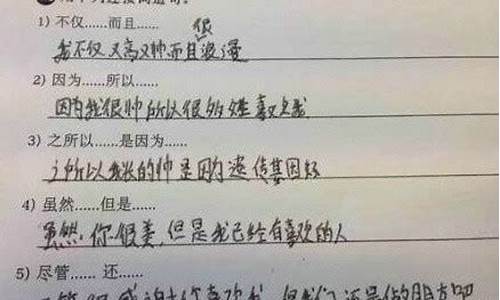 1) 不仅......而且......
很
我不仅又高又帅而且浪漫
2) 因为......所以......
因为我很帅所以很多姓喜欢我
3) 之所以......是因为......
之所以我长的帅是因为遗传基因好
4) 虽然......但是......
虽然你很美,但是我已经有喜欢的人
5) 尽管...... 还......
感谢你喜欢我 但我们还是做朋友吧